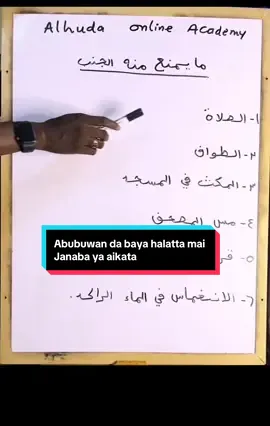 Alhuda online Academy
ما يمنع منه الجنب
١- الصلاة
٢- الطواف
٣- المكث في المسجد
٤- مس المصحف
Abubuwan da baya halatta mai
Janaba ya aikata
٥-
٦- الانغماس في الماء الراكد.